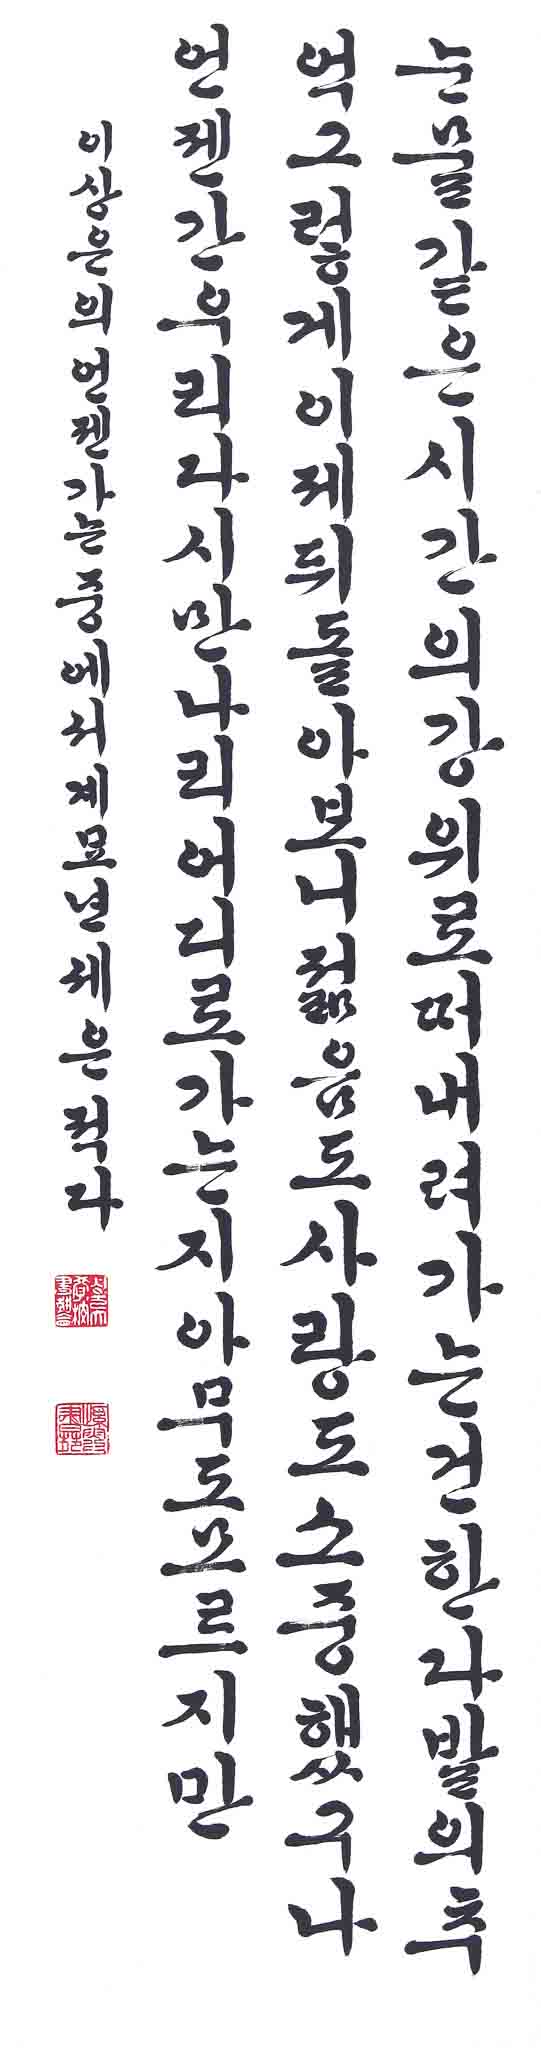 눈물같은시간의강위로떠내려가는건한다발의추
억그렇게이제뒤돌아보니젊음도사랑도소중했구나
언젠간우리다시만나리어디로가는지아무도모르지만
이상은의언젠가는중에서계묘년세은적다